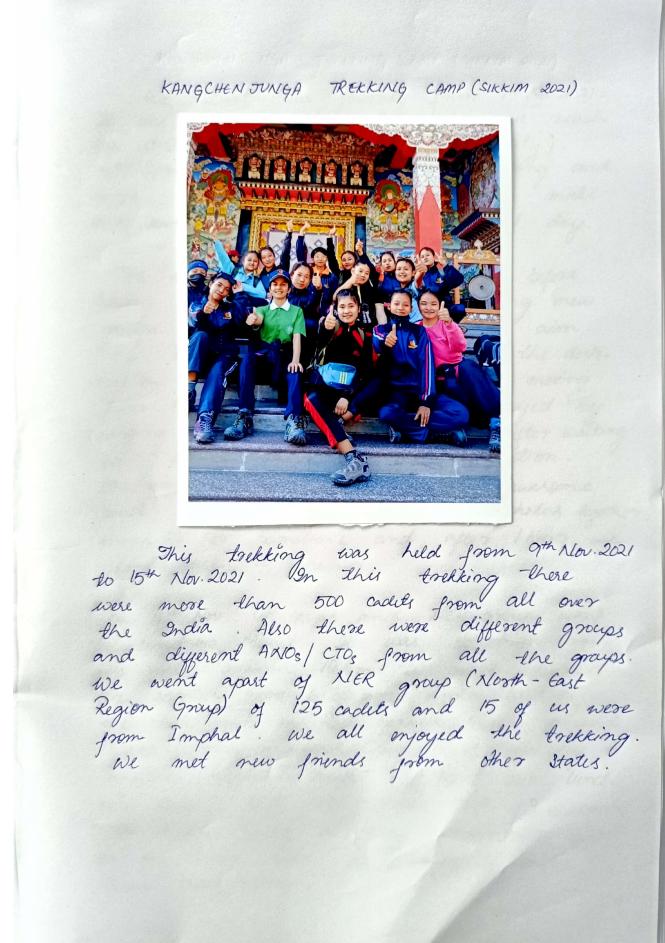 KANGCHENJUNGA TREKKING CAMP (SIKKIM 2021)
This trekking was held from 9th Nov. 2021
to 15th Nov. 2021. In this trekking there
were more than 500 cadets from all over
the India. Also there were different groups
and different ANOs/CTOs from all the groups.
We went apart of NER group (North-East
Region Group) of 125 cadets and 15 of us were
from Imphal. We all enjoyed the trekking.
We met new friends from other states.